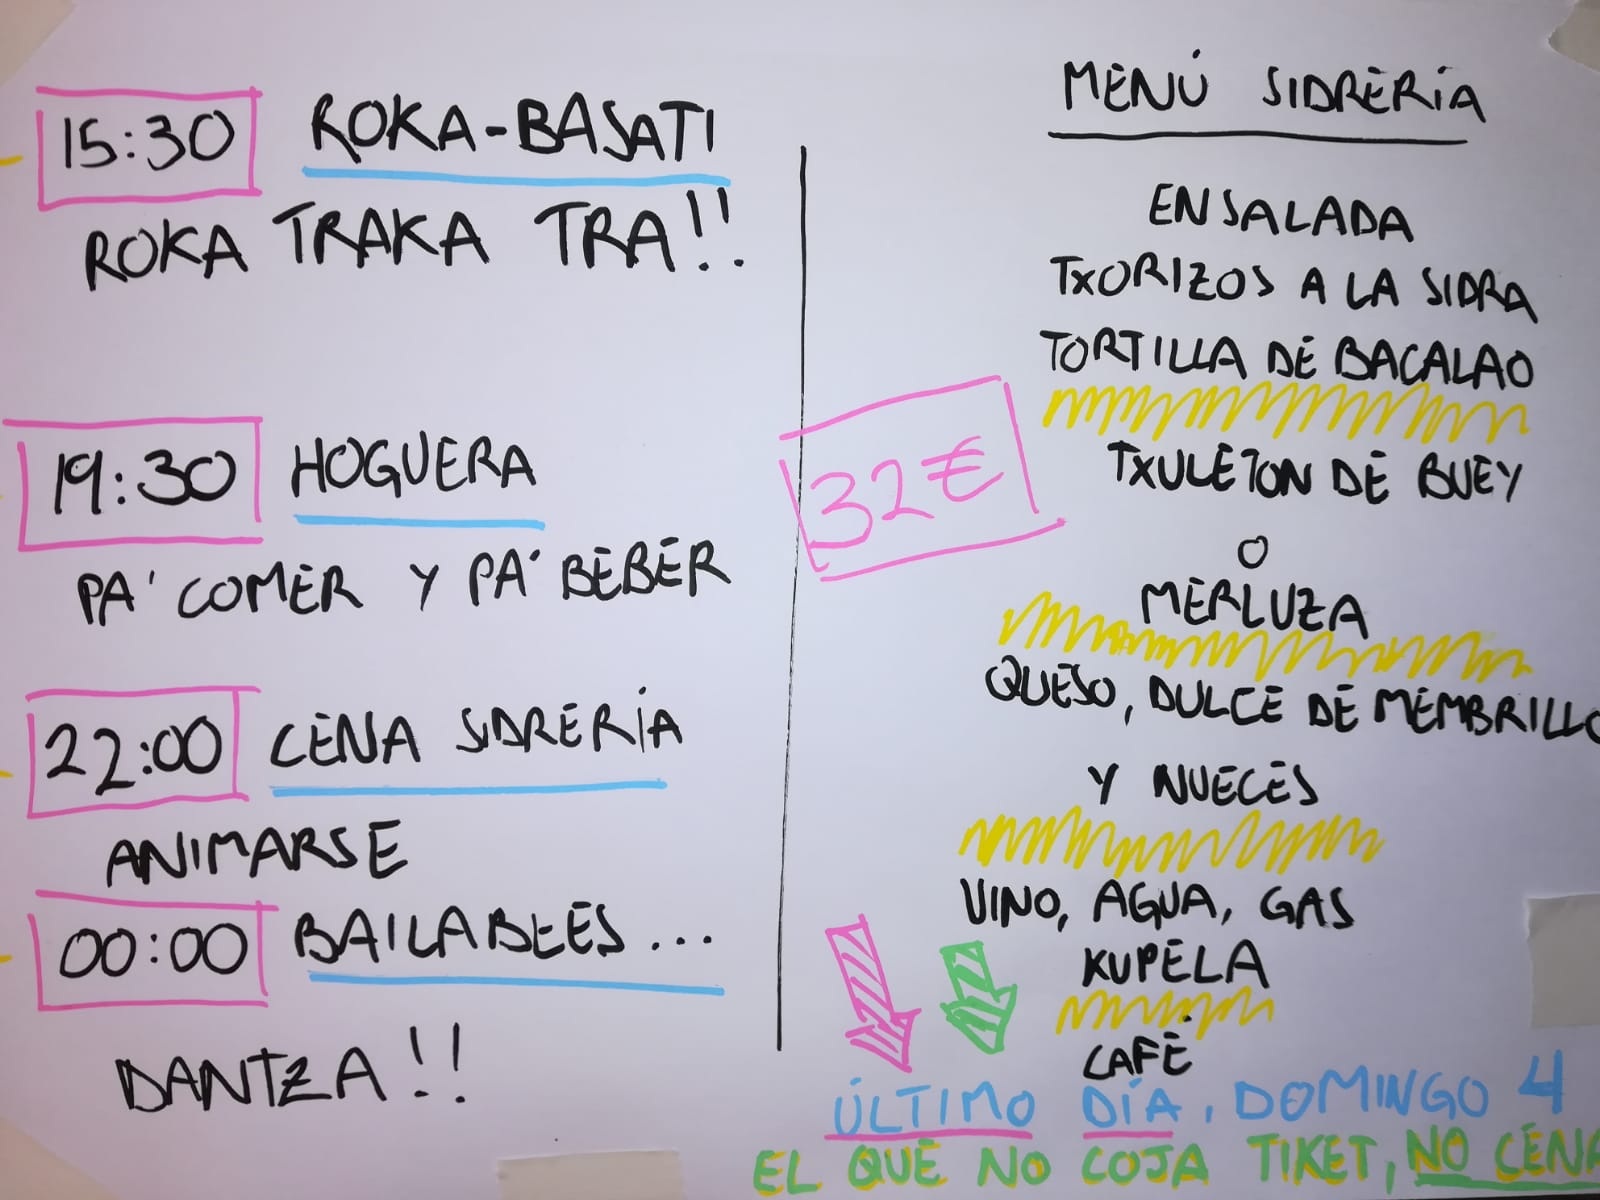 15:30 ROKA-BASATI
ROKA TRAKA TRA!!
19:30 HOGUERA
PA' COMER Y PA' BEBER
22:00 CENA SIDRERÍA
ANIMARSE
00:00 BAILABLES...
DANTZA!!
MENÚ SIDRERÍA
ENSALADA
TXORIZOS A LA SIDRA
TORTILLA DE BACALAO
32€
TXULETON DE BUEY
O
MERLUZA
QUESO, DULCE DE MEMBRILLO
Y NUECES
VINO, AGUA, GAS
KUPELA
CAFÉ
ÚLTIMO DÍA, DOMINGO 4
EL QUE NO COJA TIKET, NO CENA